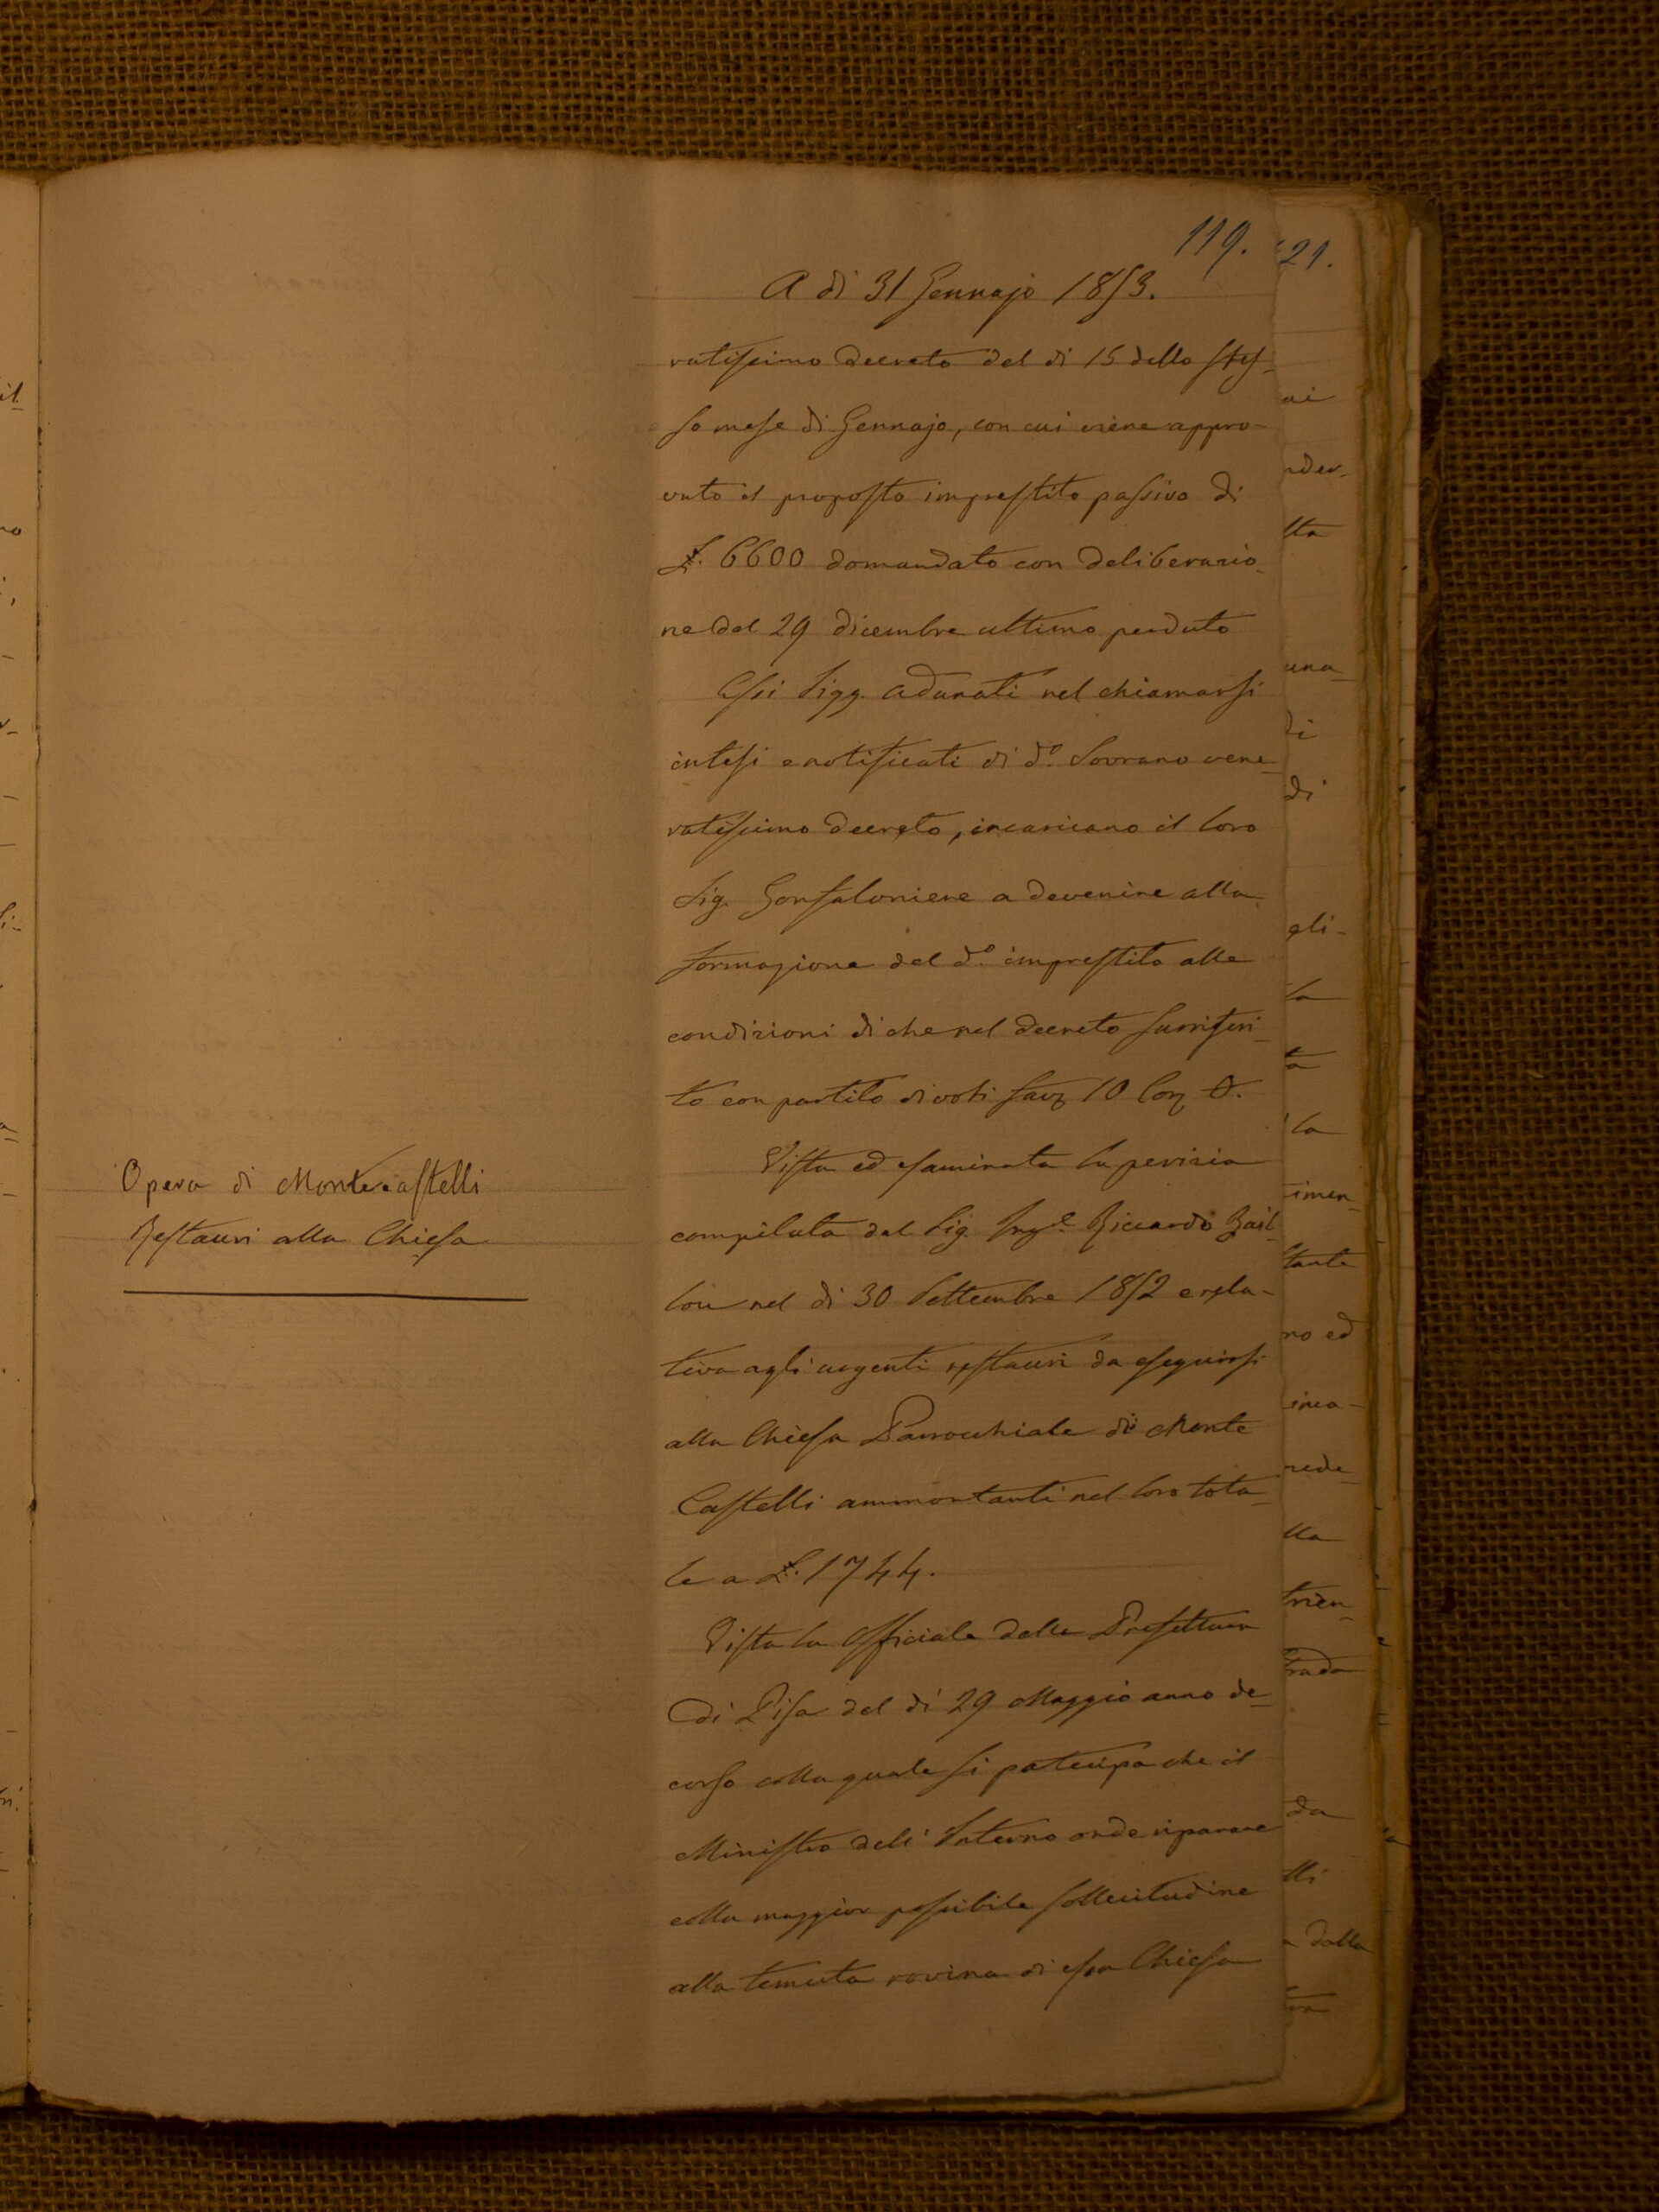 119.
21.
A dì 31 Gennajo 1853.
ratissimo decreto del dì 15 dello stes-
so mese di Gennajo, con cui viene appro-
vato il proposto imprestito passivo di
£. 6600 domandato con deliberazio-
ne del 29 dicembre ultimo perduto
Essi Sigg. adunati nel chiamarsi
intesi e notificati di d.o Sovrano vene-
ratissimo decreto, incaricano il loro
Sig. Gonfaloniere a devenire alla
formazione del d.o imprestito alle
condizioni di che nel decreto surriferi-
to con partito di voti fav 10 Con 0.
Opera di Montecastelli
Restauri alla Chiesa
Vista ed esaminata la perizia
compilata dal Sig. Ing.e Riccardo Bail-
lou nel dì 30 Settembre 1852 e rela-
tiva agli urgenti restauri da eseguirsi
alla Chiesa Parrocchiale di Monte
Castelli ammontanti nel loro tota-
le a £. 1744.
Vista la Officiale della Prefettura
di Pisa del dì 29 Maggio anno de-
corso colla quale si patecipa che il
Ministro dell'Interno onde riparare
colla maggior possibile sollecitudine
alla temuta rovina di essa Chiesa